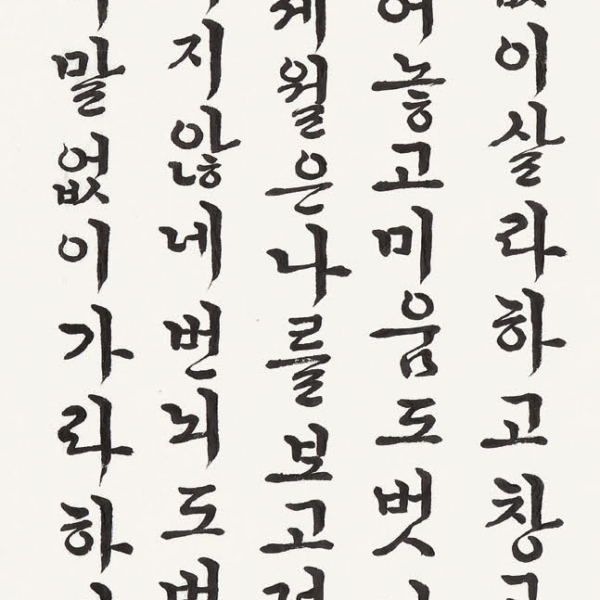 이살라하고창
어놓고미움도벗
세월은나를보고
지않네번뇌도
말없이가라하